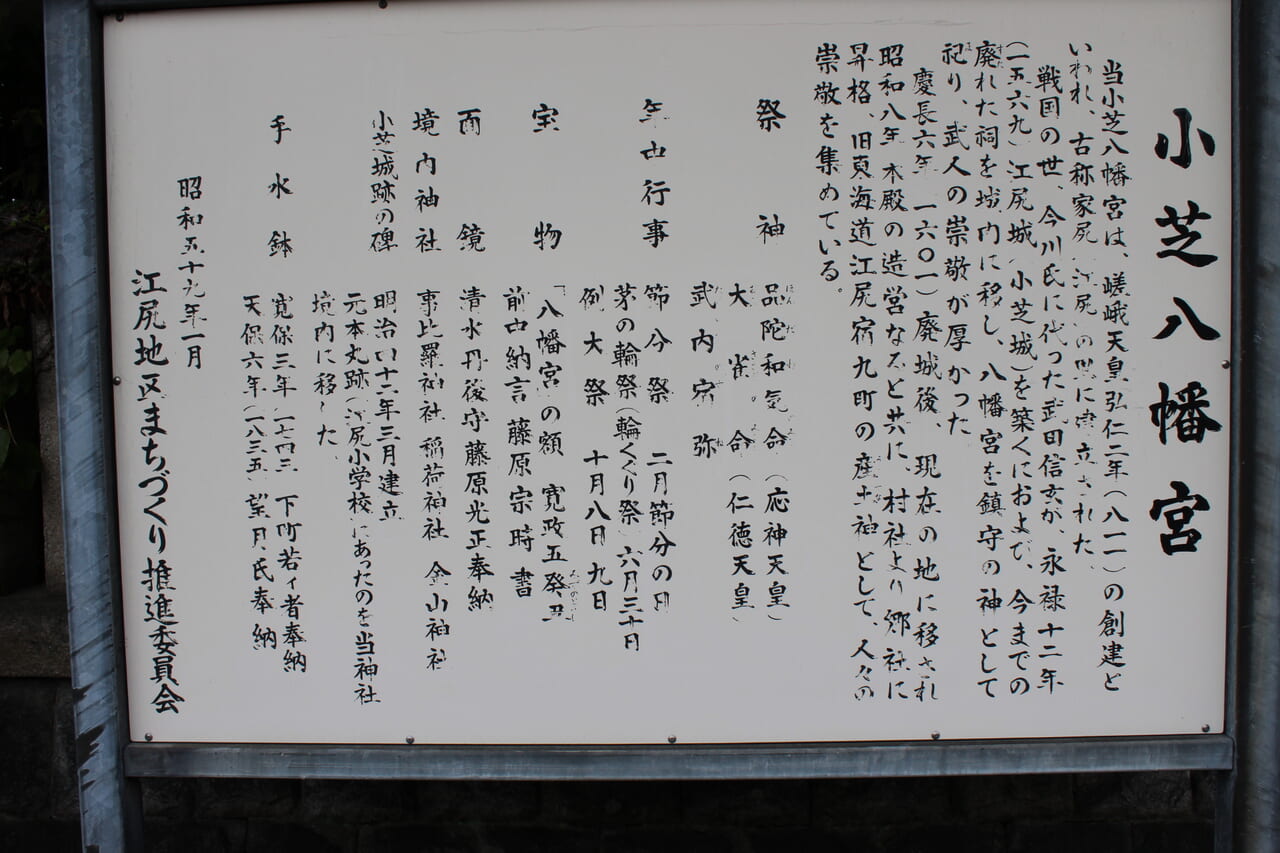 小芝八幡宮
当小芝八幡宮は、嵯峨天皇弘仁二年(八一一)の創建と
いわれ、古称家尻(江尻)の里に建立された
戦国の世、今川氏に代った武田信玄が、永禄十二年
(一五六九)江尻城(小芝城)を築くにおよび、今までの
廃れた祠を城内に移し、八幡宮を鎮守の神として
祀り、武人の崇敬が厚かった
慶長六年(一六〇一)廃城後、現在の地に移され
昭和八年本殿の造営なると共に、村社より郷社に
昇格、旧東海道江尻宿九町の産土神として、人々の
崇敬を集めている。
祭神 品陀和気命(応神天皇)
大雀命(仁徳天皇)
武内宿弥
年中行事 節分祭 二月節分の日
茅の輪祭(輪くぐり祭)六月三十日
例大祭 十月八日九日
宝物 「八幡宮の額 寛政五癸丑
前中納言藤原宗時書
面鏡 清水丹後守藤原光正奉納
境内神社 事比羅神社 稲荷神社 金山神社
小芝城跡の碑 明治四十二年三月建立
元本丸跡(江尻小学校)にあったのを当神社
境内に移した
手水鉢 寛保三年(一七四三)下町若イ者奉納
天保六年(一八三五)望月氏奉納
昭和五十九年一月
江尻地区まちづくり推進委員会